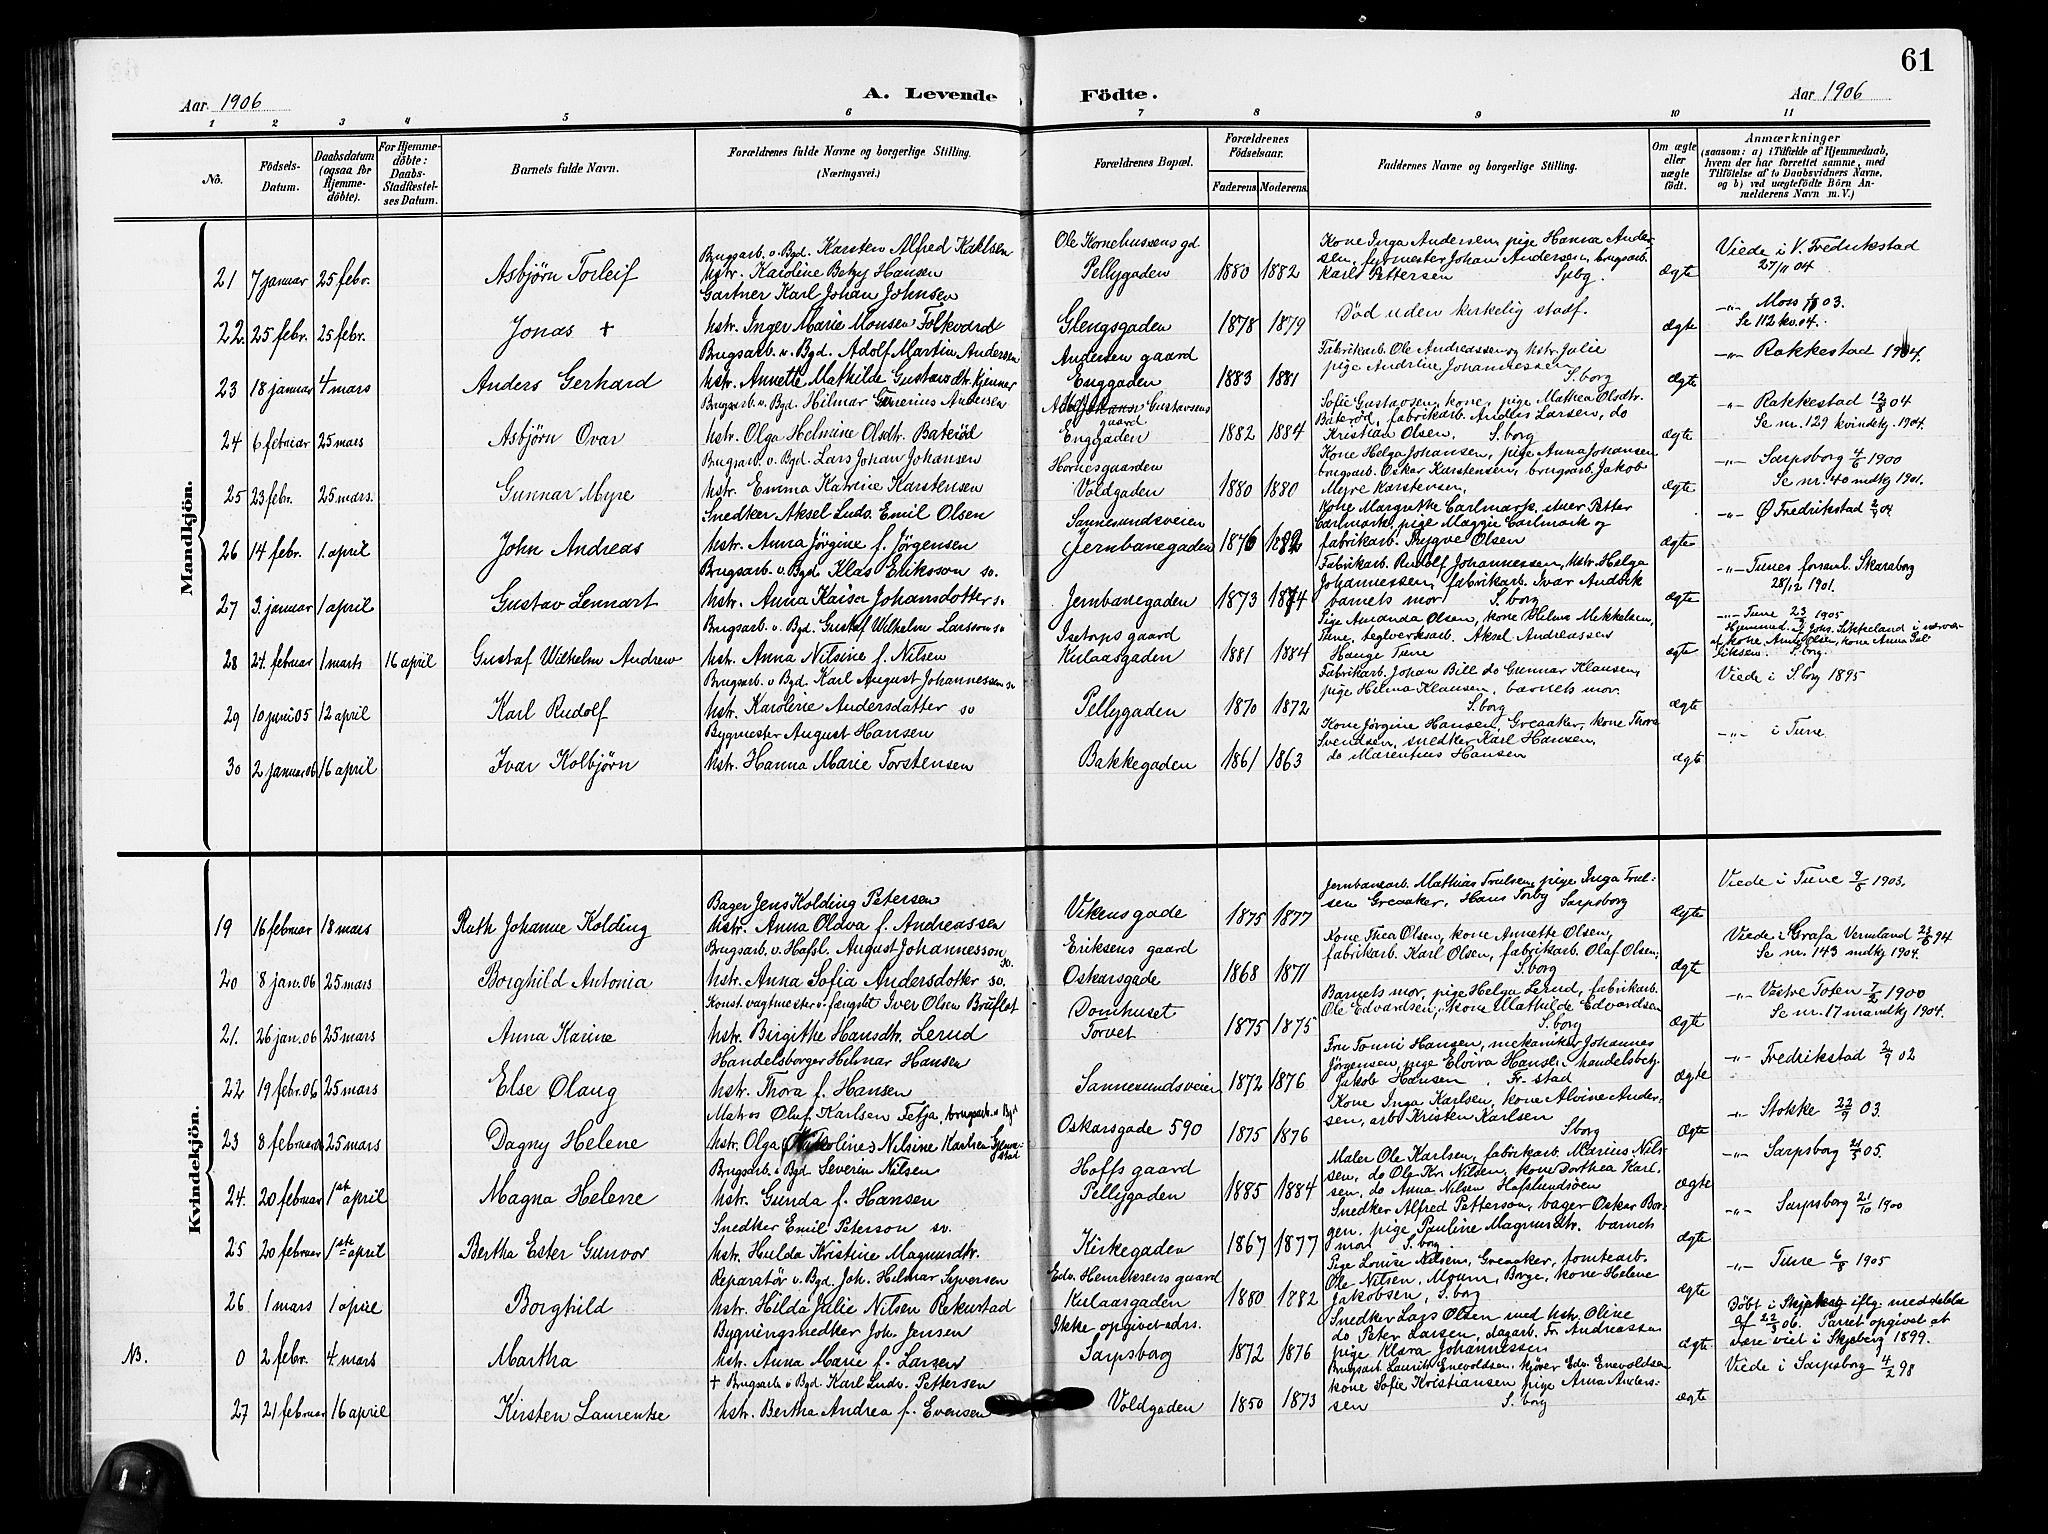 61
Aar 1906
A. Levende
Födte.
Aar 1906
1 2 3 4 5 6 7 8 9 10 11
No.
Födsels-
Datum.
Daabsdatum
(ogsaa for
Hjemme-
döbte).
For Hjemme-
döbte:
Daabs-
Stadfæstel-
ses Datum.
Barnets fulde Navn.
Forældrenes fulde Navne og borgerlige Stilling.
(Næringsvei.)
Forældrenes Bopæl.
Forældrenes
Födselsaar.
Faderens. Moderens.
Faddernes Navne og borgerlige Stilling.
Om ægte
eller
uægte
födt.
Anmærkninger
(saasom: a) i Tilfælde af Hjemmedaab,
hvem der har forrettet samme, med
Tilföielse af to Daabsvidners Navne,
og b) ved uægtefödte Börn An-
melderens Navn m. V.)
Mandkjön.
21 7 januar 25 febr. Asbjørn Torleif
Brugsarb. v. Bgd. Karsten Alfred Karlsen
hstr. Karoline Betzy Hansen
Ole Kornehussens gd
Pellygaden 1880 1882
Kone Inga Andersen, pige Hanna Ander-
sen, fyrmester Johan Andersen, brugsarb.
Karl Pettersen Spbg.
ægte
Viede i V. Fredrikstad
27/11 04
22. 25 febr. 25 febr. Jonas +
Gartner Karl Johan Johnsen
hstr. Inger Marie Monsen Folkvard
Glengsgaden 1878 1879
Død uden kirkelig stadf.
ægte
-"- Moss 03.
Se 112 kv. 04.
23 18 januar 4 mars Anders Gerhard
Brugsarb. v. Bgd. Adolf Martin Andersen
hstr. Annette Mathilde Gustavsdtr. Kjenner
Andersen gaard
Enggaden 1883 1881
Fabrikarb. Ole Andreassen og hstr. Julie
pige Andrine Johannessen
S.borg
ægte
-"- Rakkestad 1904.
24 6 februar 25 mars Asbjørn Ovar
Brugsarb. v. Bgd. Hilmar Andersen
hstr. Olga Helmine Olsdtr. Baterød
Gustavsens
gaard
Enggaden 1882 1884
Sofie Gustavsen, kone, pige Mathea Olsdtr.
Baterød, fabrikarb. Anders Larsen, do
Kristian Olsen. S.borg
ægte
-"- Rakkestad 12/8 04
Se nr. 129 kvindekj. 1904.
25 23 febr. 25 mars. Gunnar Myre
Brugsarb. v. Bgd. Lars Johan Johansen
hstr. Emma Katrine Karstensen
Hornesgaarden
Voldgaden 1880 1880
Kone Helga Johansen, pige Anna Johansen
brugsarb. Oskar Karstensen, brugsarb. Jakob
Myre Karstensen.
ægte
-"- Sarpsborg 4/6 1900
Se nr. 40 mdkj 1901.
26 14 febr. 1. april John Andreas
Snedker Aksel Ludv. Emil Olsen
hstr. Anna Jörgine f. Jörgensen
Sannesundsveien
Jernbanegaden 1876 1882
Kone Margrethe Carlmark, murer Petter
Carlmark, pige Maggie Carlmark og
fabrikarb. Trygve Olsen
ægte
-"- Ø Fredrikstad 04
27 3. januar 1 april Gustav Lennart
Brugsarb. v. Bgd. Klas Eriksson sv.
hstr. Anna Kaisa Johansdotter s.
Jernbanegaden 1873 1874
Fabrikarb. Rudolf Johannessen, hstr. Helga
Johannessen, fabrikarb. Ivar Andbek
barnets mor S.borg
ægte
-"- Tunes forsaml. Skaraborg
28/12 1901.
28 24. februar 1 marts 16 april Gustaf Wilhelm Andrew
Brugsarb. v. Bgd. Gustaf Wilhelm Larsson sv
hstr. Anna Nilsine f. Nilsen
Isetorps gaard
Kulaasgaden 1881 1884
Pige Amanda Olsen, kone Helma Mekkelsen,
Tune, teglverksarb. Aksel Andreassen
Hauge Tune
ægte
-"- Tune 23/3 1905
29 10 juni 05 12 april Karl Rudolf
Brugsarb. v. Bgd. Karl August Johannessen sv
hstr. Karoline Andersdatter sv
Pellygaden 1870 1872
Fabrikarb. Johan Bill do Gunnar Klausen,
pige Hilma Klausen, barnets mor.
S.borg
ægte
Viede i S.borg 1895
30 2 januar 06 16 april Ivar Kolbjørn
Bygmester August Hansen
hstr. Hanna Marie Torstensen
Bakkegaden 1861 1863
Kone Jörgine Hansen, Greaaker, kone Thora
Svendsen, snedker Karl Hansen,
do Marentius Hansen
ægte
-"- i Tune
Kvindekjön.
19 16 februar 18 mars Ruth Johanne Kolding
Bager Jens Kolding Petersen
hstr. Anna Oldva f. Andreassen
Vikensgade 1875 1877
Jernbanearb. Mathias Trulsen, pige Inga Trul-
sen Greaaker, Hans Torby Sarpsborg
ægte
Viede i Tune 1903.
20 8 jan. 06 25 mars Borghild Antonia
Brugsarb. v. Hafsl. August Johannesson sv.
hstr. Anna Sofia Andersdotter sv.
Eriksens gaard
Oskarsgade 1868 1871
Kone Thea Olsen, kone Annette Olsen,
fabrikarb. Karl Olsen, fabrikarb. Olaf Olsen,
S.borg
ægte
Viede i Grafa Vermland 94
Se nr. 143 mdkj 1904.
21. 26 jan. 06 25 mars Anna Karine
Konst. vagtmester v. fengslet Iver Olsen Bruflat
hstr. Birgithe Hansdtr. Lerud
Domhuset
Torvet 1875 1875
Barnets mor, pige Helga Lerud, fabrikarb.
Ole Edvardsen, kone Mathilde Edvardsen
S.borg
ægte
-"- Vestre Toten 7/2 1900
Se nr. 17 mandkj 1904.
22 19 febr. 06 25 mars Else Olaug
Handelsborger Helmar Hansen
hstr. Thora f. Hansen
Sannesundsveien 1872 1876
Fru Tonni Hansen, mekaniker Johannes
Jörgensen, pige Elvira Hansen, handelsbetj.
Jakob Hansen. Fr.stad
ægte
-"- Fredrikstad 2/9 02
23 8 februar 25 mars Dagny Helene
Matros Oluf Karlsen Tetja, brugsarb. v Bgd
hstr. Olga Nilsine Karlsen
Oskarsgade 590 1875 1876
Kone Inga Karlsen, kone Alvine Ander-
sen, arb. Kristen Karlsen
S.borg
ægte
-"- Stokke 22/9 03.
24. 20 februar 1st april Magna Helene
Brugsarb. i Bgd Severin Nilsen
hstr. Gunda f. Hansen
Hoffs gaard
Pellygaden 1885 1884
Maler Ole Karlsen, fabrikarb. Marius Nils-
sen, do Ole Kr. Nilsen, kone Dorthea Karl-
sen, do Anna Nilsen Hafslundsöen
ægte
-"- Sarpsborg 05.
25 20 februar 1ste april Bertha Ester Gunvor
Snedker Emil Peterson sv.
hstr. Hulda Kristine Magnusdtr.
Kirkegaden 1867 1877
Snedker Alfred Petterson, bager Oskar Bor-
gen, pige Pauline Magnusdtr. barnets
mor S.borg
ægte
-"- Sarpsborg 21/10 1900
26 1 mars 1 april Borghild
Reparatør v. Bgd. Joh. Hilmar Syversen
hstr. Hilda Julie Nilsen Rekustad
Edv. Henriksens gaard
Kulaasgaden 1880 1882
Pige Louise Nilsen, Greaaker, tomtearb.
Ole Nilsen, Moum, Borge, kone Helene
Jakobsen, S.borg
ægte
-"- Tune 6/8 1905
NB. 0 2 febr. 4. mars Martha
Bygningsnedker Joh. Jensen
hstr. Anna Marie f. Larsen
Ikke opgivet adrs.
Sarpsborg 1872 1876
Snedker Lars Olsen med hstr. Oline
do Peter Larsen, dagarb. Fr. Andreassen
pige Klara Johannessen
ægte
Döbt i Skjeberg iflg. meddelelse
af 22/3 06. Parret opgivet at
være viet i Skjeberg 1899.
27 21 februar 16 april Kirsten Laurentse
+ Brugsarb. v Bgd. Karl Ludv. Pettersen
hstr. Bertha Andrea f. Evensen
Voldgaden 1850 1873
Brugsarb. Laurits Enevoldsen, kjører Edv. Enevoldsen
kone Sofie Kristiansen pige Anna Anders-
sen S.borg
ægte
Viede i Sarpsborg 4/2 98